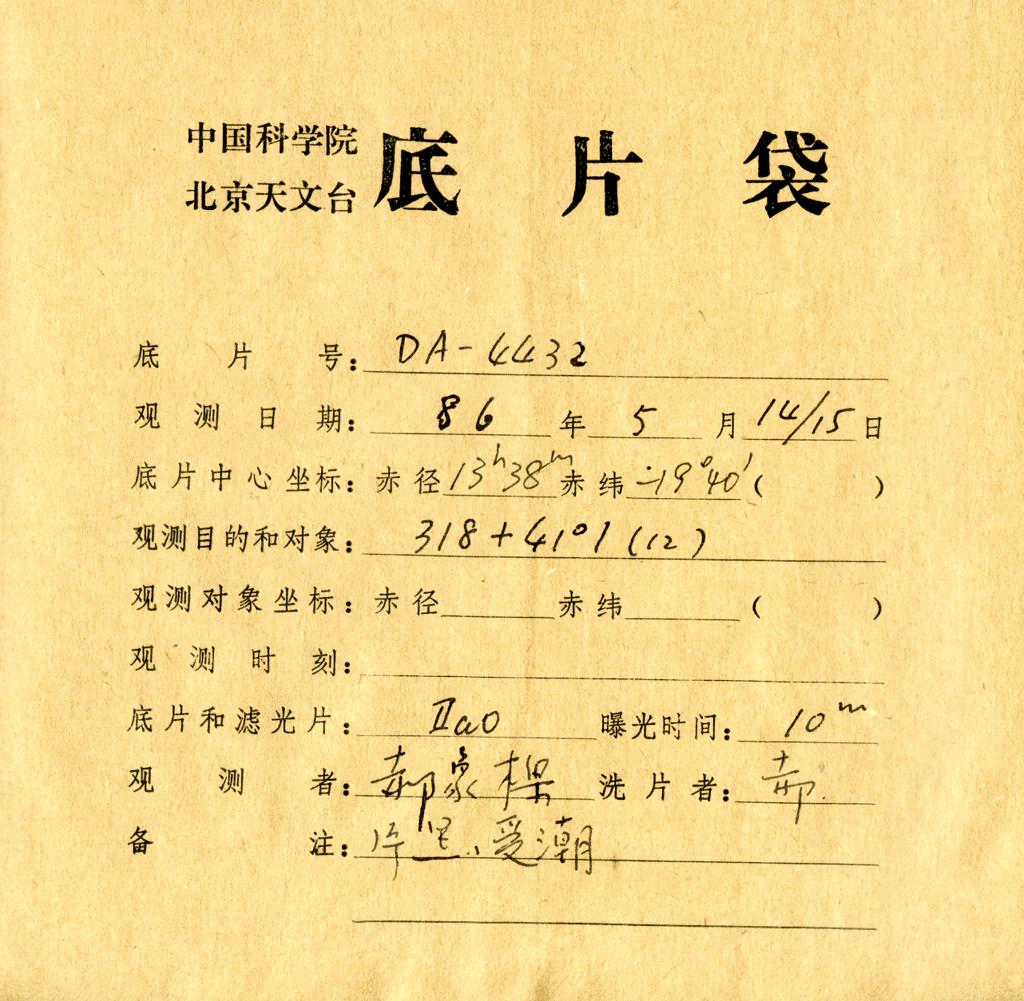 中国科学院
北京天文台 底片袋
底片号：DA-4432
观测日期：86年5月14/15日
底片中心坐标：赤径13h38m赤纬-19°40′（ ）
观测目的和对象：318+41°1(12)
观测对象坐标：赤径 赤纬 （ ）
观测时刻：
底片和滤光片：IIaO 曝光时间：10m
观测者：郝象樑 洗片者：郝
备注：片黑、受潮